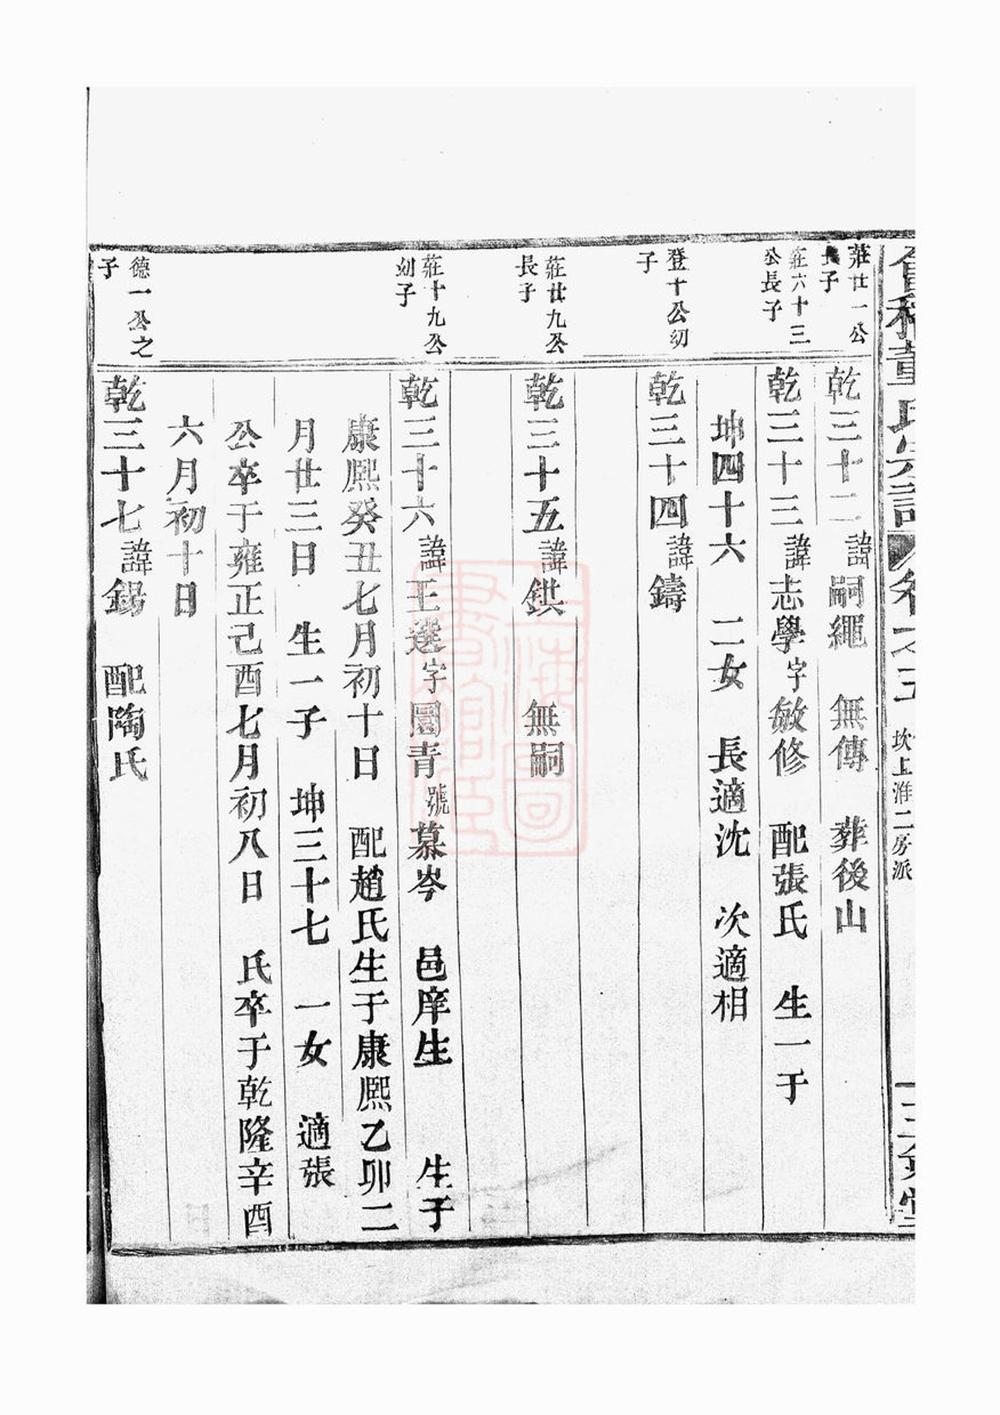 會稽董氏宗譜 卷之五 坎上淮二房派 三多堂
莊廿一公
長子
乾三十二諱嗣繩 無傳 葬後山
莊六十三
公長子
乾三十三諱志學字敏修 配張氏 生一子
坤四十六 二女 長適沈 次適相
登十公幼
子
乾三十四諱鑄
莊廿九公
長子
乾三十五諱鉷 無嗣
莊十九公
幼子
乾三十六諱王選字圜青號慕岑 邑庠生 生于
康熙癸丑七月初十日 配趙氏生于康熙乙卯二
月廿三日 生一子 坤三十七 一女 適張
公卒于雍正己酉七月初八日 氏卒于乾隆辛酉
六月初十日
德一公之
子
乾三十七諱錫 配陶氏